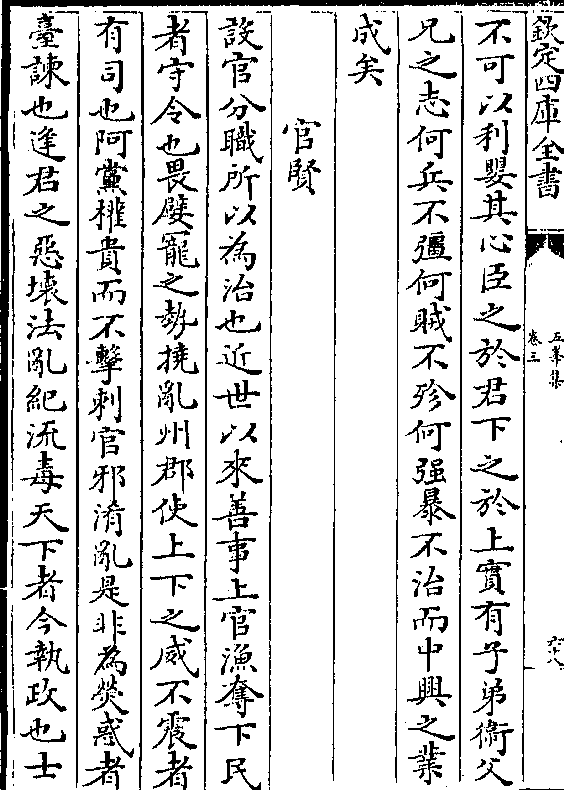 欽定四庫全書
五峯集
卷三
六十八
不可以利嬰其心臣之於君下之於上實有子弟衛父
兄之志何兵不彊何賊不殄何强暴不治而中興之業
成矣
官賢
設官分職所以為治也近世以來善事上官漁奪下民
者守令也畏嬖寵之勢撓亂州郡使上下之威不震者
有司也阿黨權貴而不擊刺官邪淆亂是非為熒惑者
臺諫也逢君之惡壊法亂紀流毒天下者今執政也士